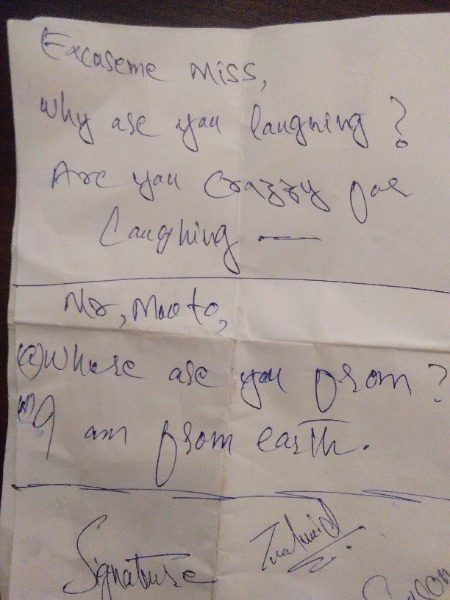 Excaseme Miss,
Why are you laugning?
Are you crazzy for
Laughing —
Mr, Moto,
(a) Where are you from?
I am from earth.
Signature